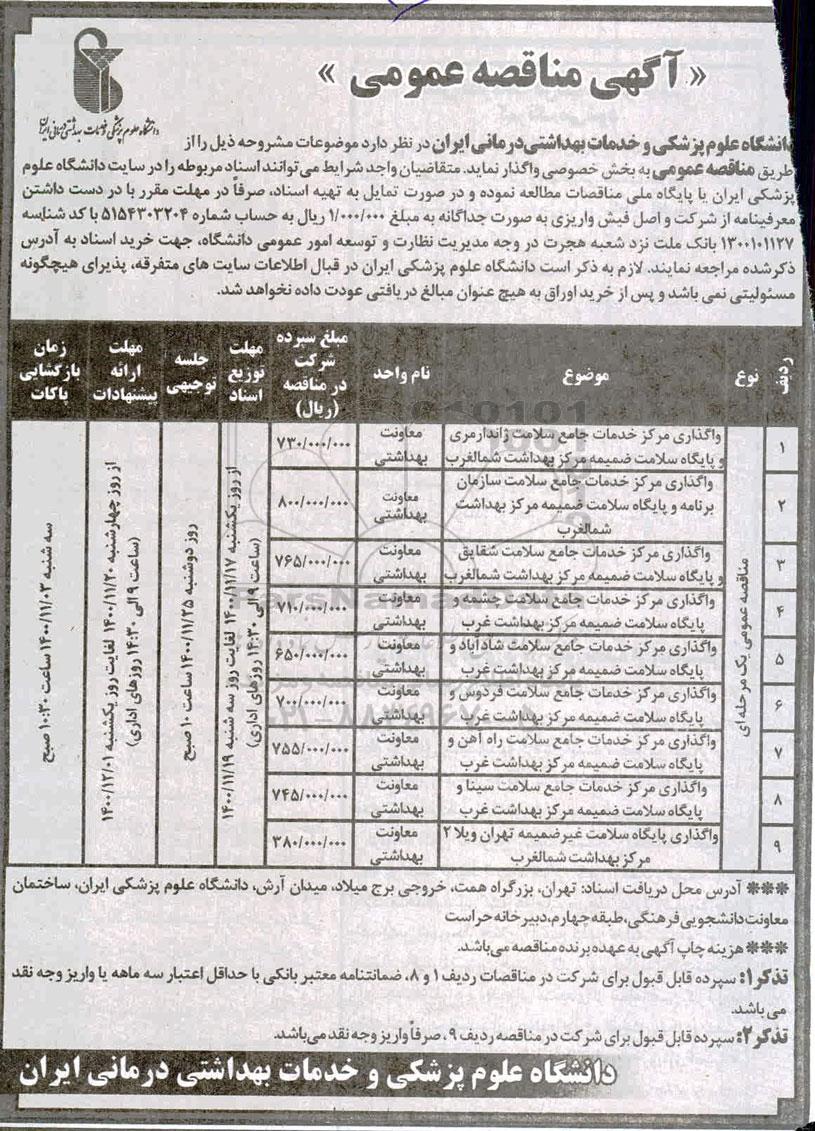 « آگهی مناقصه عمومی »
دانشگاه علوم پزشکی و خدمات بهداشتی درمانی ایران
دانشگاه علوم پزشکی و خدمات بهداشتی درمانی ایران در نظر دارد موضوعات مشروحه ذیل را از
طریق مناقصه عمومی به بخش خصوصی واگذار نماید. متقاضیان واجد شرایط می توانند اسناد مربوطه را در سایت دانشگاه علوم
پزشکی ایران یا پایگاه ملی مناقصات مطالعه نموده و در صورت تمایل به تهیه اسناد، صرفاً در مهلت مقرر با در دست داشتن
معرفینامه از شرکت و اصل فیش واریزی به صورت جداگانه به مبلغ ۱/۰۰۰/۰۰۰ ریال به حساب شماره ۵۱۵۴۳۰۳۲۰۴ با کد شناسه
۱۳۰۰۱۰۱۱۲۷ بانک ملت نزد شعبه هجرت در وجه مدیریت نظارت و توسعه امور عمومی دانشگاه، جهت خرید اسناد به آدرس
ذکرشده مراجعه نمایند. لازم به ذکر است دانشگاه علوم پزشکی ایران در قبال اطلاعات سایت های متفرقه، پذیرای هیچگونه
مسئولیتی نمی باشد و پس از خرید اوراق به هیچ عنوان مبالغ دریافتی عودت داده نخواهد شد.
ردیف
نوع
موضوع
نام واحد
مبلغ سپرده
شرکت
در مناقصه
(ریال)
مهلت
توزیع
اسناد
جلسه
توجیهی
مهلت
ارائه
پیشنهادات
زمان
بازگشایی
پاکات
مناقصه عمومی یک مرحله ای
۱
واگذاری مرکز خدمات جامع سلامت ژاندارمری
و پایگاه سلامت ضمیمه مرکز بهداشت شمالغرب
معاونت
بهداشتی
۷۳۰/۰۰۰/۰۰۰
۲
واگذاری مرکز خدمات جامع سلامت سازمان
برنامه و پایگاه سلامت ضمیمه مرکز بهداشت
شمالغرب
معاونت
بهداشتی
۸۰۰/۰۰۰/۰۰۰
۳
واگذاری مرکز خدمات جامع سلامت شقایق
و پایگاه سلامت ضمیمه مرکز بهداشت شمالغرب
معاونت
بهداشتی
۷۶۵/۰۰۰/۰۰۰
۴
واگذاری مرکز خدمات جامع سلامت چشمه و
پایگاه سلامت ضمیمه مرکز بهداشت غرب
معاونت
بهداشتی
۷۱۰/۰۰۰/۰۰۰
۵
واگذاری مرکز خدمات جامع سلامت شادآباد و
پایگاه سلامت ضمیمه مرکز بهداشت غرب
معاونت
بهداشتی
۶۵۰/۰۰۰/۰۰۰
۶
واگذاری مرکز خدمات جامع سلامت فردوس و
پایگاه سلامت ضمیمه مرکز بهداشت غرب
معاونت
بهداشتی
۷۰۰/۰۰۰/۰۰۰
۷
واگذاری مرکز خدمات جامع سلامت راه آهن و
پایگاه سلامت ضمیمه مرکز بهداشت غرب
معاونت
بهداشتی
۷۵۵/۰۰۰/۰۰۰
۸
واگذاری مرکز خدمات جامع سلامت سینا و
پایگاه سلامت ضمیمه مرکز بهداشت غرب
معاونت
بهداشتی
۷۴۵/۰۰۰/۰۰۰
۹
واگذاری پایگاه سلامت غیرضمیمه تهران ویلا ۲
مرکز بهداشت شمالغرب
معاونت
بهداشتی
۳۸۰/۰۰۰/۰۰۰
از روز یکشنبه ۱۴۰۰/۱۱/۱۷ لغایت روز سه شنبه ۱۴۰۰/۱۱/۱۹
(ساعت ۹ الی ۱۴:۳۰ روزهای اداری)
روز دوشنبه ۱۴۰۰/۱۱/۲۵ ساعت ۱۰ صبح
از روز چهارشنبه ۱۴۰۰/۱۱/۲۰ لغایت روز یکشنبه ۱۴۰۰/۱۲/۰۱
(ساعت ۹ الی ۱۴:۳۰ روزهای اداری)
سه شنبه ۱۴۰۰/۱۱/۰۳ ساعت ۱۰:۳۰ صبح
*** آدرس محل دریافت اسناد: تهران، بزرگراه همت، خروجی برج میلاد، میدان آرش، دانشگاه علوم پزشکی ایران، ساختمان
معاونت دانشجویی فرهنگی، طبقه چهارم، دبیرخانه حراست
*** هزینه چاپ آگهی به عهده برنده مناقصه می باشد.
تذکر۱: سپرده قابل قبول برای شرکت در مناقصات ردیف ۱ و ۸، ضمانتنامه معتبر بانکی با حداقل اعتبار سه ماهه یا واریز وجه نقد
می باشد.
تذکر۲: سپرده قابل قبول برای شرکت در مناقصه ردیف ۹، صرفاً واریز وجه نقد می باشد.
دانشگاه علوم پزشکی و خدمات بهداشتی درمانی ایران